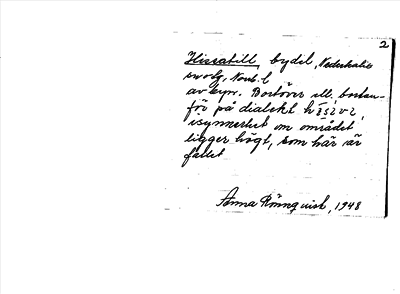 2
Hissatill, bydel, Nederkalix
swolg, Norrb. l
av byn. Bortöver ell. bortan-
för på dialekt
isynnerhet om området
ligger högt, som här är
fallet
Anna Rönnquist, 1948